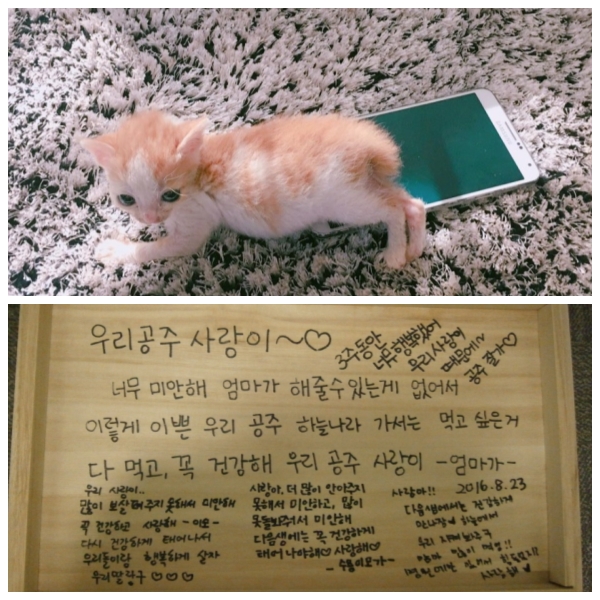 우리공주 사랑이~♡
3주동안
너무행복했어
우리사랑이
때문에~
공주 잘가♡
너무 미안해 엄마가 해줄수있는게 없어서
이렇게 이쁜 우리 공주 하늘나라 가서는 먹고 싶은거
다 먹고, 꼭 건강해 우리 공주 사랑이 -엄마가-
2016.8.23
우리 사랑이..
많이 보살펴주지 못해서 미안해
꼭 건강하고 사랑해 -이모-
다시 건강하게 태어나서
우리들이랑 행복하게 살자
우리말랑구 ♡♡♡
사랑아. 더 많이 안아주지
못해서 미안하고, 많이
못돌봐줘서 미안해
다음생에는 꼭 건강하게
태어나야해♡ 사랑해♡
- 수룡이모가-
사랑아!!
다음생에서는 건강하게
만나자 하늘에서
우리 지켜봐주구
엄마
사랑해